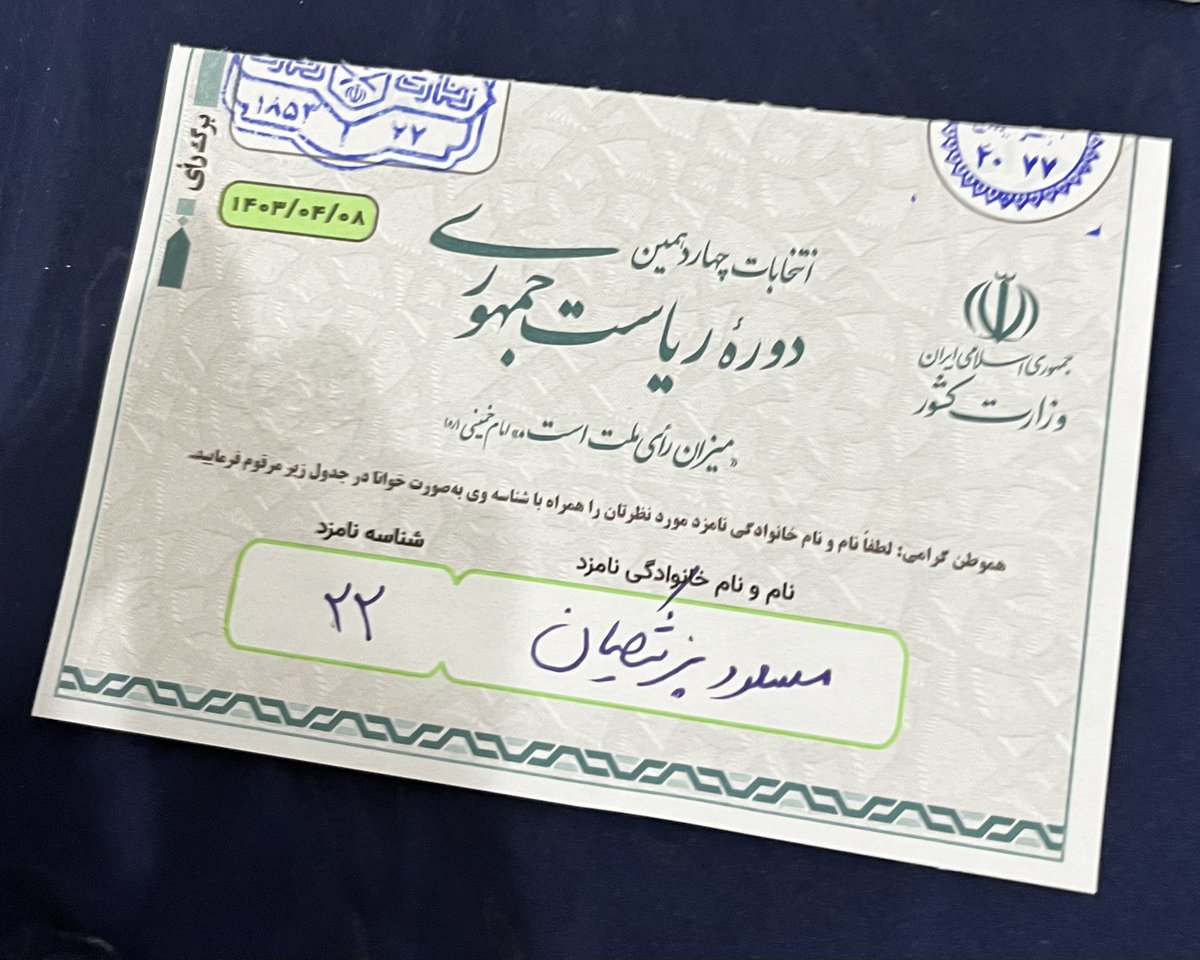 برگ رأی
۱۸۵۳ ۲۲
۴۰ ۷۷
۱۴۰۳/۰۴/۰۸
انتخابات چهاردهمین
دورهٔ ریاست جمهوری
جمهوری اسلامی ایران
وزارت کشور
«میزان رأی ملت است.» امام خمینی (ره)
هموطن گرامی؛ لطفاً نام و نام خانوادگی نامزد مورد نظرتان را همراه با شناسه وی به‌صورت خوانا در جدول زیر مرقوم فرمایید.
نام و نام خانوادگی نامزد
شناسه نامزد
مسعود پزشکیان
۲۲